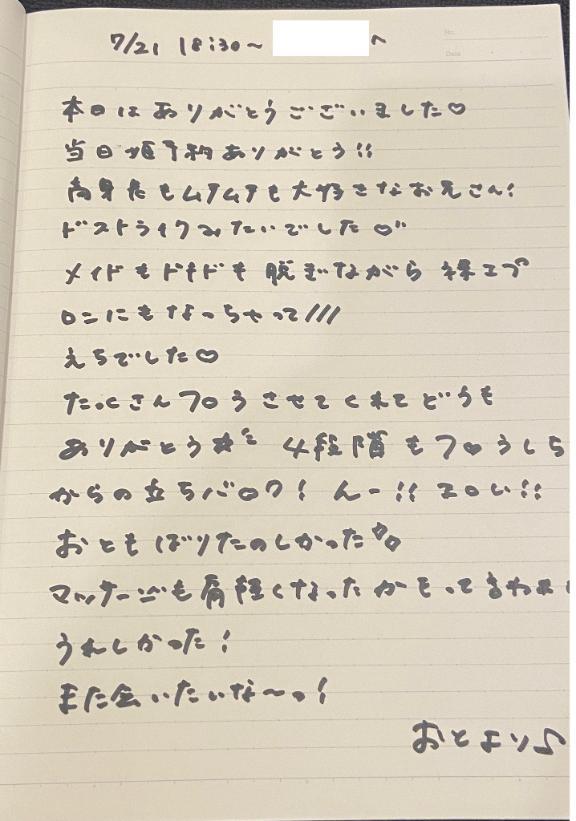 7/21 18:30~ へ
No.
Date
本日はありがとうございました♡
当日姫予約ありがとう!!
高身長もムチムチも大好きなお兄さん!
ドストライクみたいでした♡
メイドもドキドキ脱ぎながら裸エプ
ロンにもなっちゃって///
えちでした♡
たっくさんフ○うさせてくれてどうも
ありがとう☆ミ 4段階もフ○うしち
からの立ちバ○ク! んー!! エ○い!!
おともばりたのしかった
マッサージも肩軽くなったかもって言われ
うれしかった!
また会いたいな〜っ!
おとより♪